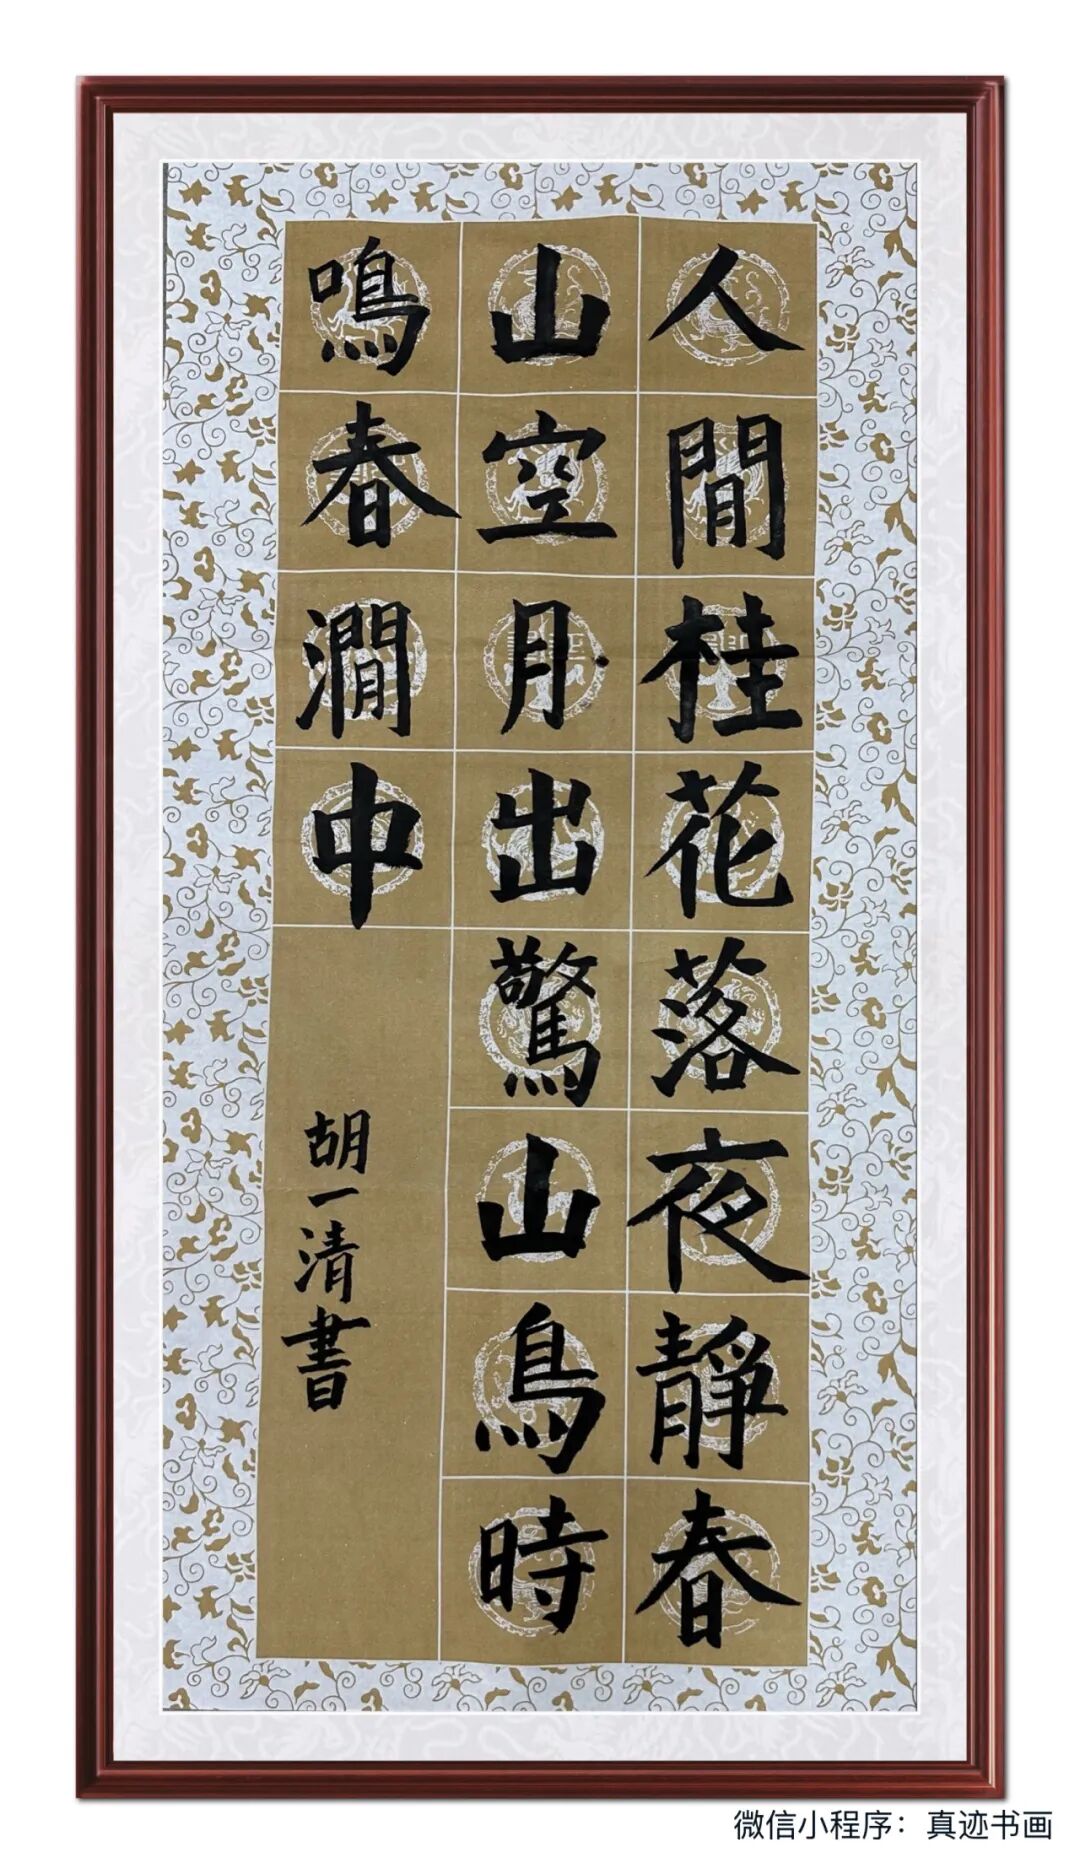 人間桂花落夜靜春
山空月出驚山鳥時
鳴春澗中
胡一清書
微信小程序：真迹书画